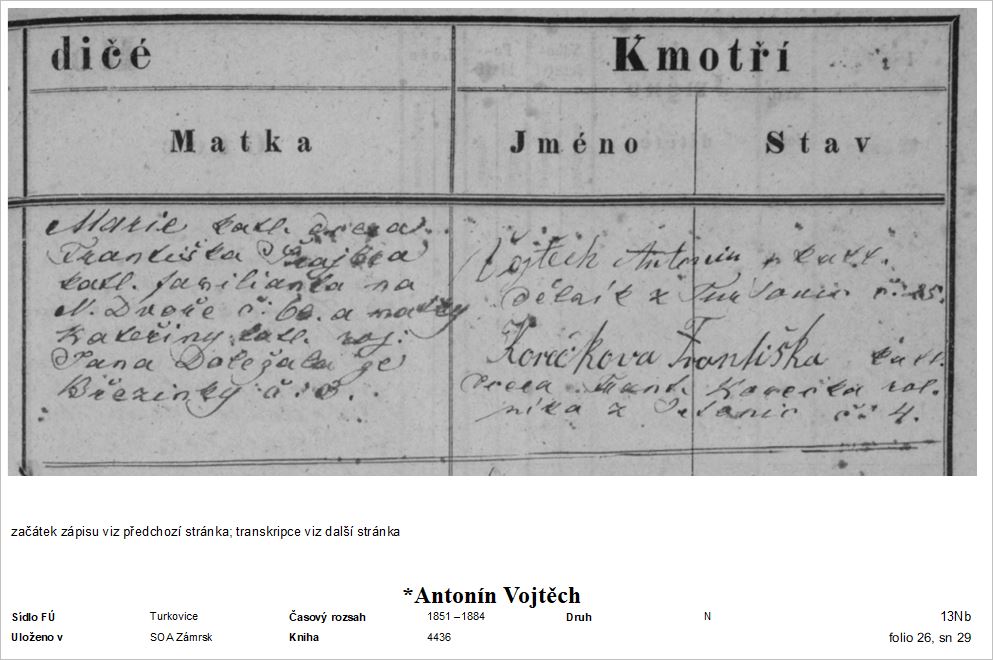 dičé
Kmotří
Matka
Jméno
Stav
Marie katl. dcera
Františka
katl. familianta na
N. Dvoře č. 60. a matky
Kateřiny katl. roj.
Jana Doležala ze
Březinky č. 3.
Vojtěch Antonín katl.
dělník z Turkovic č. 25.
Korečkova Františka katl.
dcera Frant. Korečka rol-
níka z č. 4.
začátek zápisu viz předchozí stránka; transkripce viz další stránka
*Antonín Vojtěch
Sídlo FÚ Turkovice Časový rozsah 1851 –1884 Druh N 13Nb
Uloženo v SOA Zámrsk Kniha 4436 folio 26, sn 29